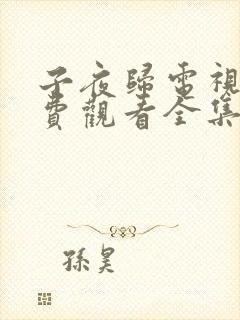 子夜歸電視
費觀看全集
孫昊